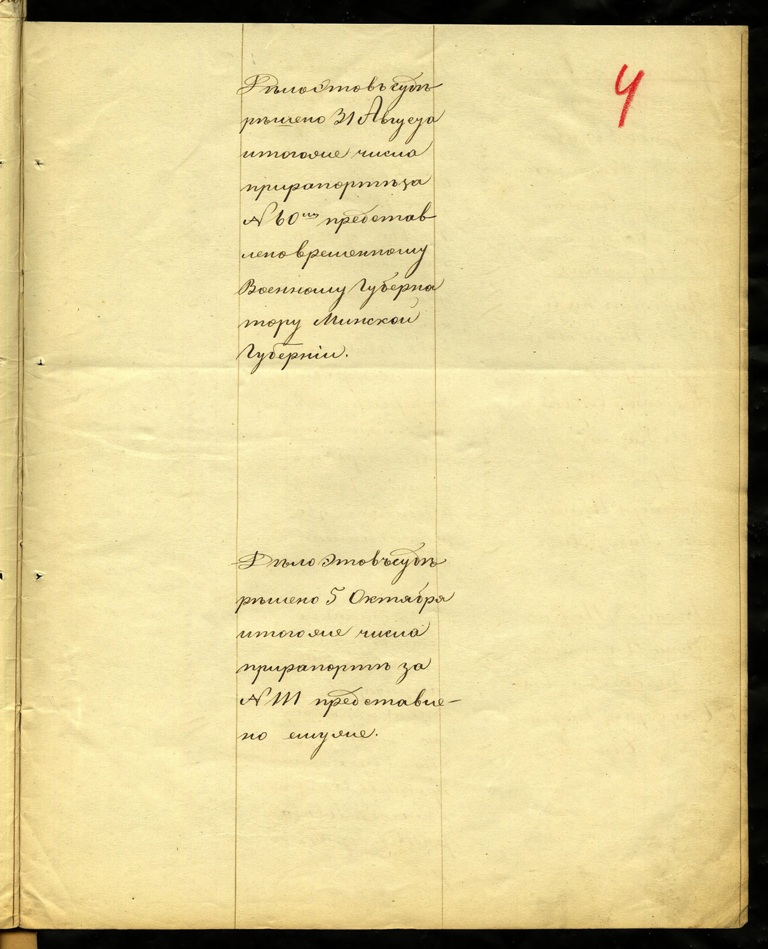 4
Дѣло этовъ судѣ
рѣшено 31 Августа
итогоже числа
прирапортѣ за
№ 60ᵐᵃ представ
лено временному
Военному Губерна
тору Минской
Губерніи.
Дѣло этовъ судѣ
рѣшено 5 Октября
итогоже числа
прирапортѣ за
№ 111 представле-
но емуже.